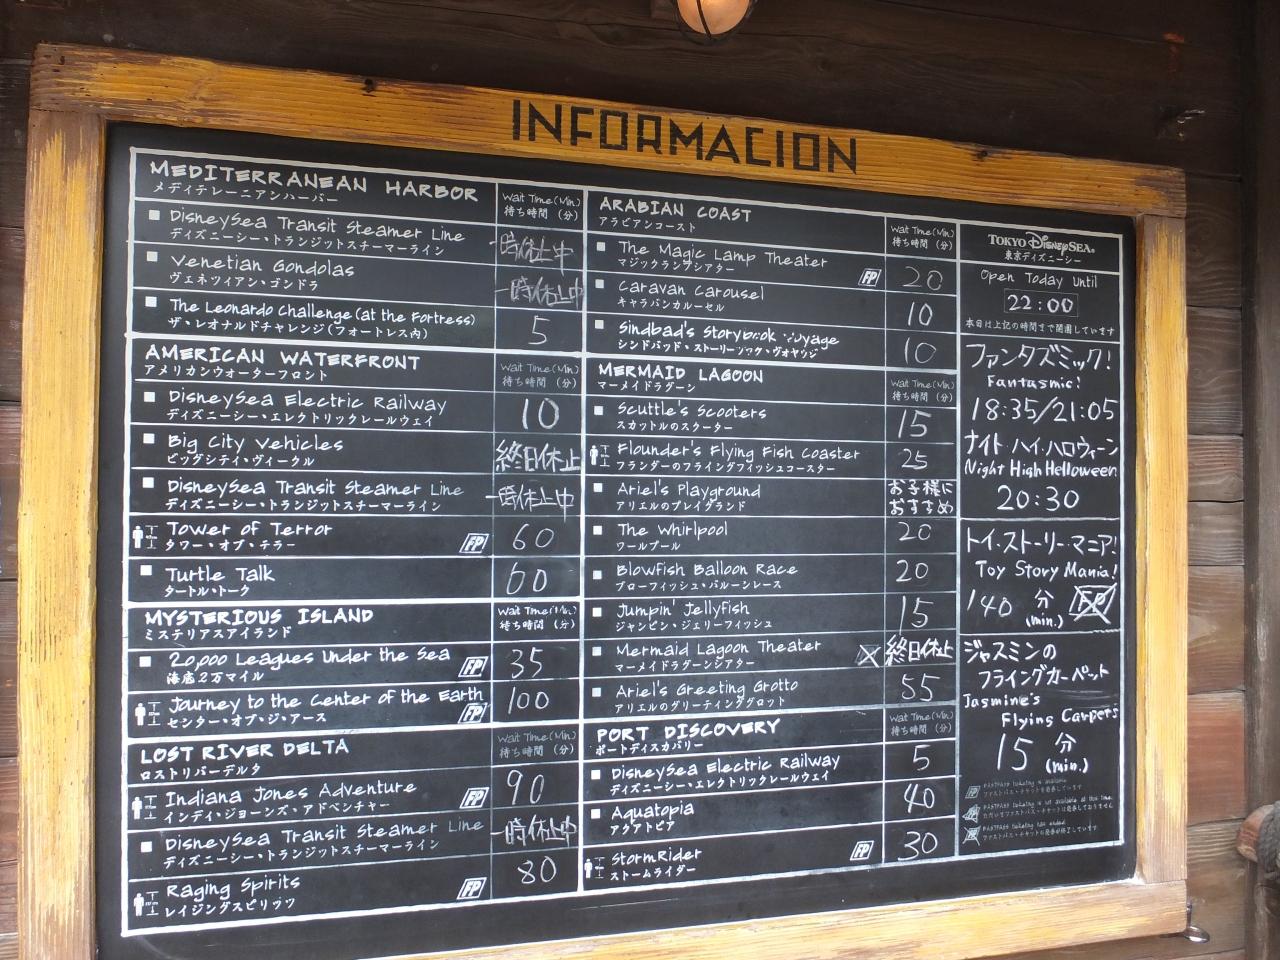 INFORMACION
MEDITERRANEAN HARBOR
メディテレーニアンハーバー
Wait Time (Min.)
待ち時間 (分)
DisneySea Transit Steamer Line
ディズニーシー・トランジットスチーマーライン
一時休止中
Venetian Gondolas
ヴェネツィアン・ゴンドラ
一時休止中
The Leonardo Challenge (at the Fortress)
ザ・レオナルドチャレンジ (フォートレス内)
5
AMERICAN WATERFRONT
アメリカンウォーターフロント
Wait Time (Min.)
待ち時間 (分)
DisneySea Electric Railway
ディズニーシー・エレクトリックレールウェイ
10
Big City Vehicles
ビッグシティ・ヴィークル
終日休止
DisneySea Transit Steamer Line
ディズニーシー・トランジットスチーマーライン
一時休止中
Tower of Terror
タワー・オブ・テラー
FP
60
Turtle Talk
タートル・トーク
60
MYSTERIOUS ISLAND
ミステリアスアイランド
Wait Time (Min.)
待ち時間 (分)
20,000 Leagues Under the Sea
海底2万マイル
FP
35
Journey to the Center of the Earth
センター・オブ・ジ・アース
FP
100
LOST RIVER DELTA
ロストリバーデルタ
Wait Time (Min.)
待ち時間 (分)
Indiana Jones Adventure
インディ・ジョーンズ・アドベンチャー
FP
90
DisneySea Transit Steamer Line
ディズニーシー・トランジットスチーマーライン
一時休止中
Raging Spirits
レイジングスピリッツ
FP
80
ARABIAN COAST
アラビアンコースト
Wait Time (Min.)
待ち時間 (分)
The Magic Lamp Theater
マジックランプシアター
FP
20
Caravan Carousel
キャラバンカルーセル
10
Sindbad's Storybook Voyage
シンドバッド・ストーリーブック・ヴォヤッジ
10
MERMAID LAGOON
マーメイドラグーン
Wait Time (Min.)
待ち時間 (分)
Scuttle's Scooters
スカットルのスクーター
15
Flounder's Flying Fish Coaster
フランダーのフライングフィッシュコースター
25
Ariel's Playground
アリエルのプレイグランド
お子様に
おすすめ
The Whirlpool
ワールプール
20
Blowfish Balloon Race
ブローフィッシュ・バルーンレース
20
Jumpin' Jellyfish
ジャンピン・ジェリーフィッシュ
15
Mermaid Lagoon Theater
マーメイドラグーンシアター
終日休止
Ariel's Greeting Grotto
アリエルのグリーティンググロット
55
PORT DISCOVERY
ポートディスカバリー
Wait Time (Min.)
待ち時間 (分)
DisneySea Electric Railway
ディズニーシー・エレクトリックレールウェイ
5
Aquatopia
アクアトピア
40
StormRider
ストームライダー
FP
30
TOKYO DISNEYSEA®
東京ディズニーシー
Open Today Until
22:00
本日は上記の時間まで開園しています
ファンタズミック!
Fantasmic!
18:35/21:05
ナイト・ハイ・ハロウィーン
Night High Helloween
20:30
トイ・ストーリー・マニア!
Toy Story Mania!
140 分
(min.)
FP
ジャスミンの
フライングカーペット
Jasmine's
Flying Carpets
15 分
(min.)
FASTPASS ticketing is available.
ファストパス・チケットを発券しています
FASTPASS ticketing is not available at this time.
ただいまファストパス・チケットの発券をしておりません
FASTPASS ticketing has ended.
ファストパス・チケットの発券が終了しています